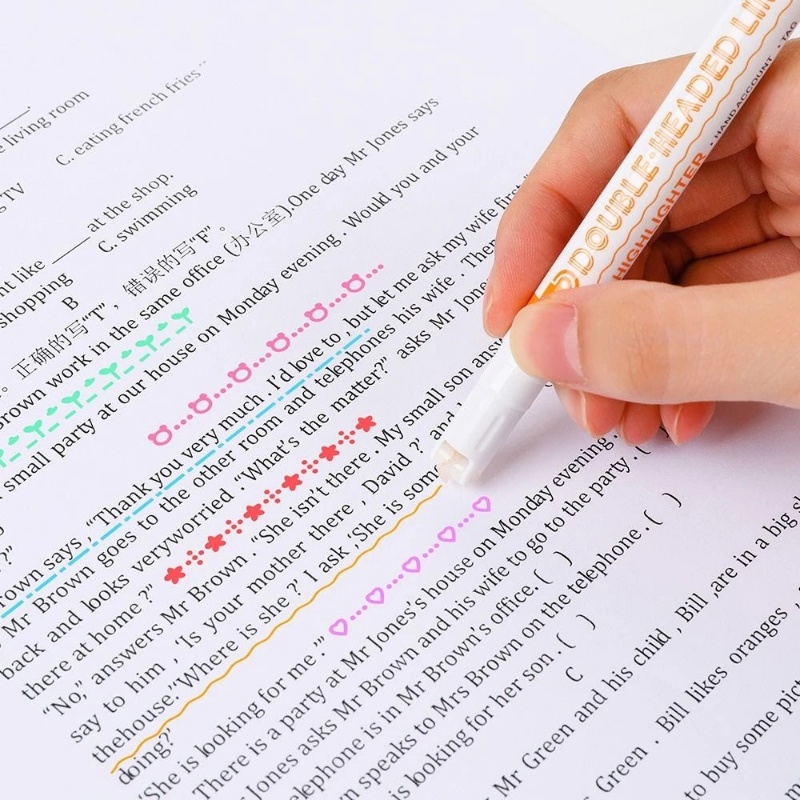 living room
C. eating french fries
TV
like ____ at the shop.
shopping C. swimming
B
。正确的写“T”，错误的写“F”。
Brown work in the same office (办公室).One day Mr Jones says
small party at our house on Monday evening . Would you and your
?”
says, “Thank you very much . I'd love to , but let me ask my wife first
Mr Brown goes to the other room and telephones his wife . The
back and looks veryworried . “What's the matter?” asks Mr Jone
there at home ?”
“No,” answers Mr Brown . “She isn't there . My small son answ
say to him , 'Is your mother there , David ?' and
thehouse.'‘Where is she ?' I ask ,'She is som
doing?'
“She is looking for me .”
There is a party at Mr Jones's house on Monday evening.
Jones asks Mr Brown and his wife to go to the party. ( )
elephone is in Mr Brown's office. ( )
wn speaks to Mrs Brown on the telephone . ( )
is looking for her son . ( )
C
Mr Green and his child , Bill ,are in a big s
Green . Bill likes oranges ,
to buy some pict
DOUBLE·HEADED LIN
HIGHLIGHTER · HAND ACCOUNT · TAG